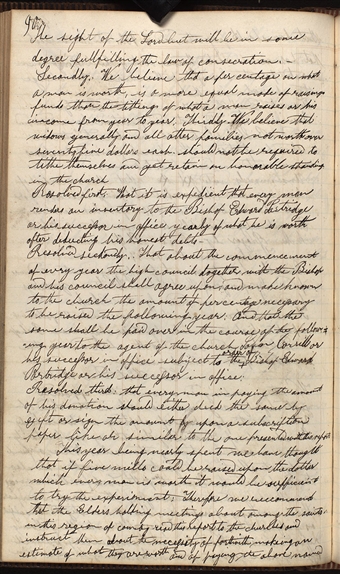 the sight of the Lord but will be in some
degree fullfilling the law of consecration. –
Secondly. We believe that a per centage on what
a man is worth, is a more equal mode of raising
funds than the tithing of what a man raises as his
income from year to year. Thirdly. We believe that
widows generally and all other families not worth over
seventy five dollars each should not be required to
tithe themselves and yet retain an honorable standing
in the church
Resolved first. That it is expedient that every man
render an inventory to the Bishop Edward Partridge
or his successor in office yearly of what he is worth
after deducting his honest debts –
Resolved secondly. That about the commencement
of every year the high council together with the Bishop
and his council shall agree upon and make known
to the church the amount of percentage necessary
to be raised the following year. And that the
same shall be paid over in the course of the follow-
ing year to the agent of the church Logan Corrill or
his successor in office subject to the order of Bishop Edward
Partridge or his successor in office.
Resolved third. that every man in paying the amount
of his donation should either deed the same by
gift or sign the amount upon a subscription
paper like or similar to the one presented with this report
This year being nearly spent we have thought
that if five mills could be raised upon the dollar
which every man is worth it would be sufficient
to try the experiment. Therefore we reccommend
that the Elders holding meetings about among the saints
in this region of country read this report to the churches and
instruct them about the necessity of forthwith making an
estimate of what they are worth and of paying the above named